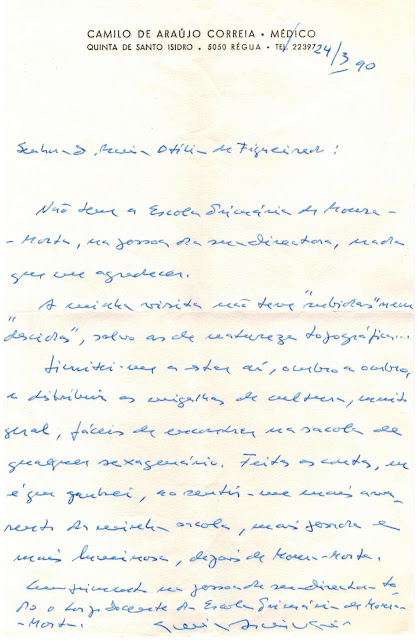 CAMILO DE ARAÚJO CORREIA • MÉDICO
QUINTA DE SANTO ISIDRO . 5050 RÉGUA • TEL. 22397
24/3/90
Senhora D. Maria Otília de Figueiredo:
Não tem a Escola Primária de Moura-
-Morta, na pessoa da sua directora, nada
que me agradecer.
A minha visita não teve "subidas" nem
"descidas", salvo as de natureza topográfica...
Limitei-me a estar aí, ombro a ombro,
e distribuir as migalhas de cultura, muito
geral, fáceis de encontrar na sacola de
qualquer sexagenário. Feitas as contas, eu
é que ganhei, ao sentir-me mais
da minha sacola, mais pesada e
mais luminosa, depois de Moura-Morta.
Cumprimento na pessoa da sua directora to-
do o Corpo Docente da Escola Primária de Moura-
-Morta.